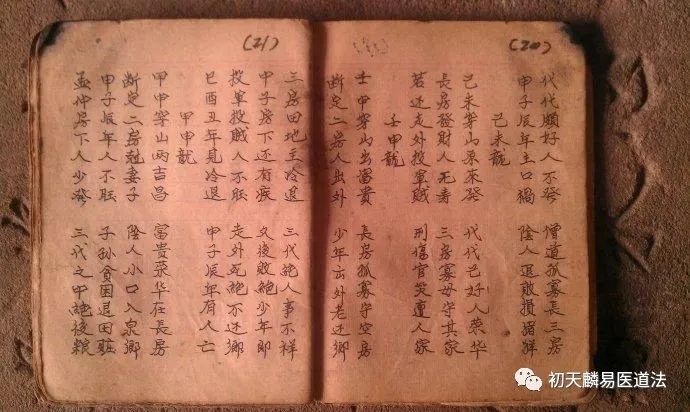 (20)
代代願好人不發 僧道孤寡長三房
甲子辰年主口禍 陰人退敗損
己未龍
己未穿山原萊發 代代己好人荣华
長房發財人无寿 三房寡母守其家
若还走外投軍賊 刑傷官災遭人家
壬甲龍
壬甲穿山出富貴 長房孤寡守空房
断定二房人出外 少年去外老还鄉
(21)
三房田地主冷退 三代絶人事不祥
甲子房下还有疾 久後敗絶少年郎
投軍投賊人不旺 走外死絶不还鄉
巳酉丑年見冷退 甲子辰年有人亡
甲甲龍
甲甲穿山两吉昌 富貴荣华在長房
断定二房尅妻子 陰人小口入泉鄉
甲子辰年人不旺 子孫貧困退田莊
孟仲房下人少發 三代之中絶後粮
初天麟易医道法